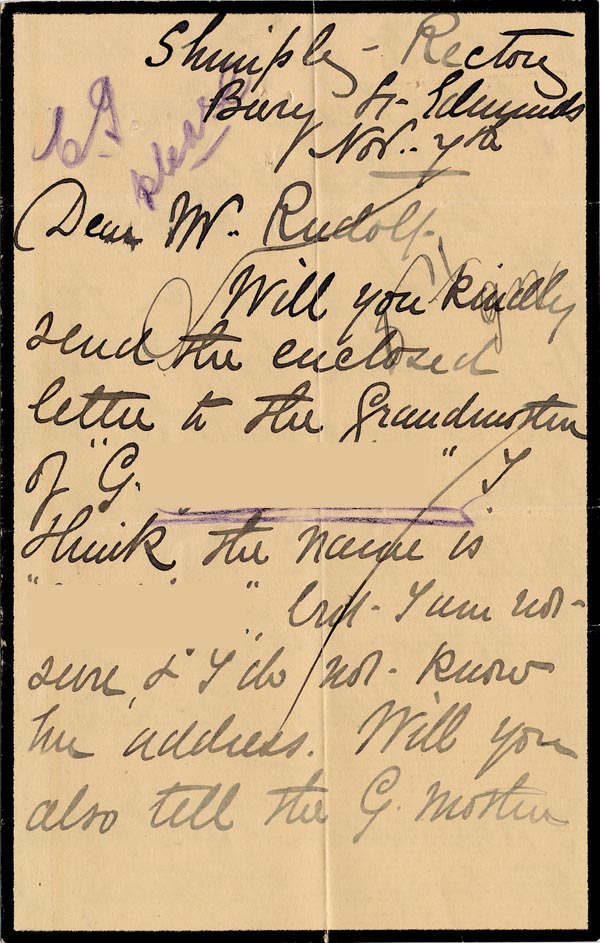 Shimpley - Rectory
Bury St. Edmunds
Nov. 7th
please
Dear Mr. Rudolf.
Will you kindly
send the enclosed
letter to the Grandmother
of "G. " I
think the name is
" " but - I am not -
sure, & I do not - know
her address. Will you
also tell the G. Mother